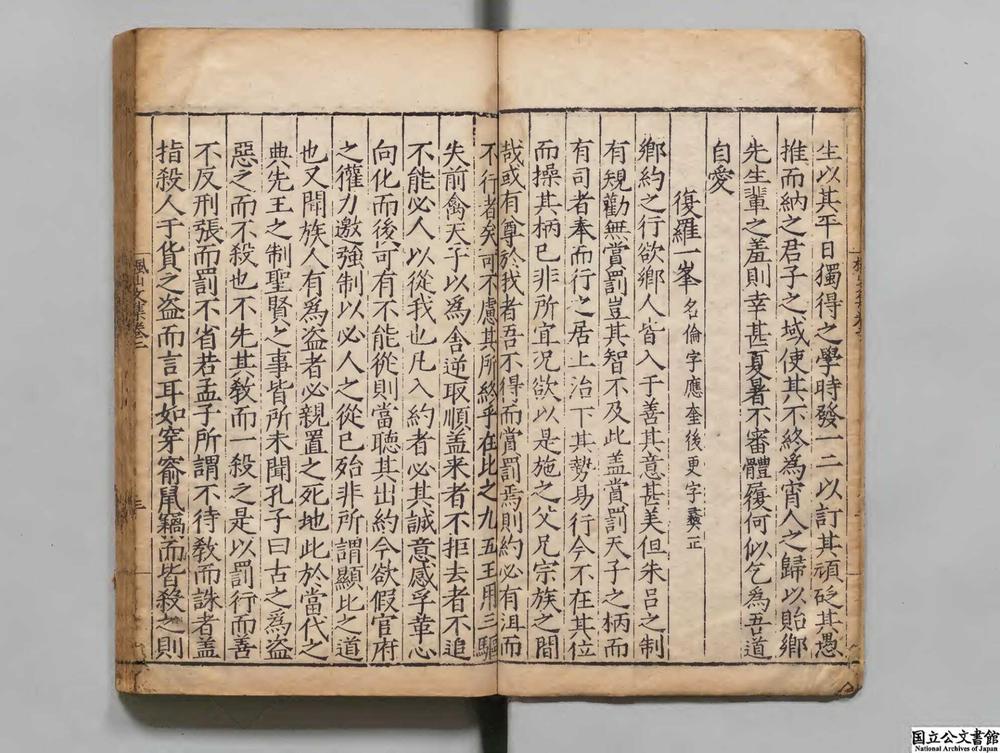 生以其平日獨得之學時發一二以訂其頑砭其愚
推而納之君子之域使其不終為宵人之歸以貽鄉
先生輩之羞則幸甚夏暑不審體履何似乞為吾道
自愛
復羅一峯 名倫字應奎後更字彝正
鄉約之行欲鄉人皆入于善其意甚美但朱呂之制
有規勸無賞罰豈其智不及此盖賞罰天子之柄而
有司者奉而行之居上治下其勢易行今不在其位
而操其柄已非所宜况欲以是施之父兄宗族之間
哉或有尊於我者吾不得而當罰焉則約必有沮而
不行者矣可不慮其所終乎在比之九五王用三驅
失前禽天子以為舍逆取順盖来者不拒去者不追
不能必人以從我也凡入約者必其誠意感孚革心
向化而後可有不能從則當聽其出約今欲假官府
之權力邀強制以必人之從已殆非所謂顯比之道
也又聞族人有為盗者必親置之死地此於當代之
典先王之制聖賢之事皆所未聞孔子曰古之為盗
惡之而不殺也不先其教而一殺之是以罰行而善
不反刑張而罰不省若孟子所謂不待教而誅者盖
指殺人于貨之盗而言耳如穿窬鼠竊而皆殺之則
楓山文集卷二
三
国立公文書館
National Archives of Japan